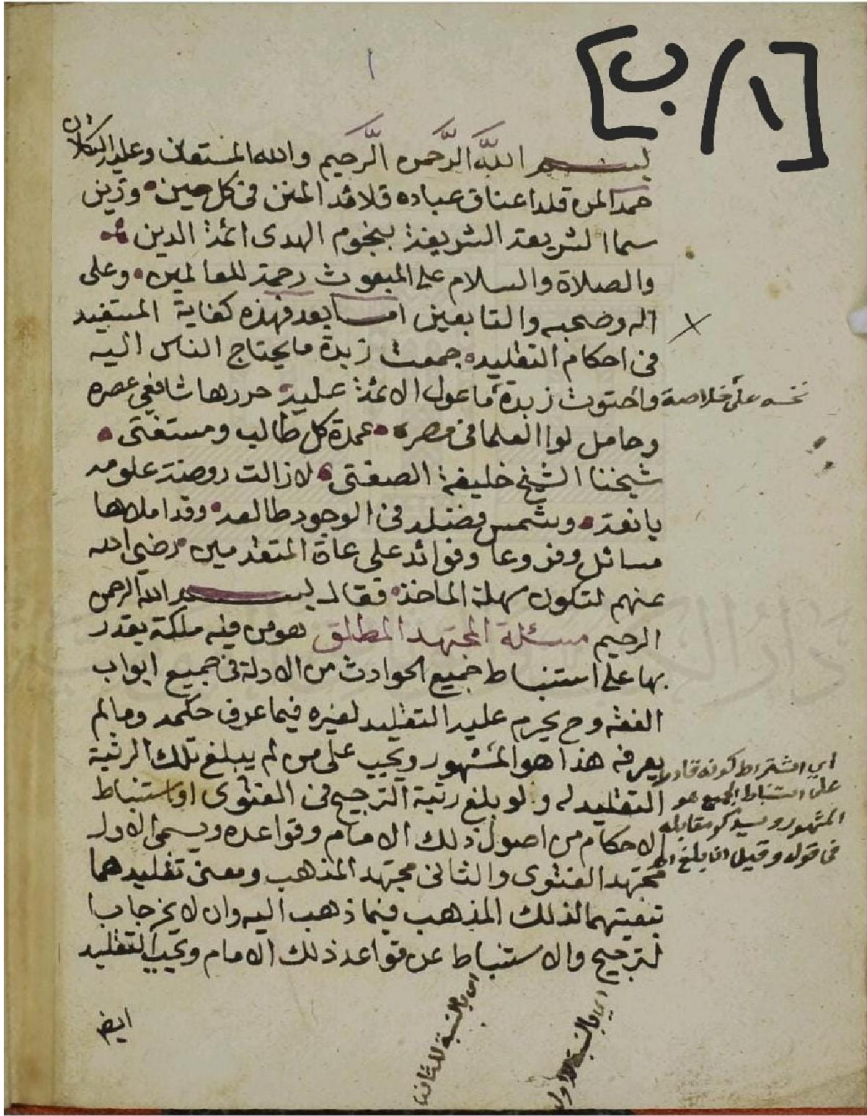 [١/ب]
١
بسم الله الرحمن الرحيم والله المستعان وعليه التكلان
حمدا لمن قلد اعناق عباده قلائد المنن في كل حين وزين
سما الشريعة الشريفة بنجوم الهدى ائمة الدين
والصلاة والسلام على المبعوث رحمة للعالمين وعلى
اله وصحبه والتابعين اما بعد فهذه كفاية المستفيد
في احكام التقليد جمعت زبدة ما يحتاج الناس اليه
واحتوت زبدة ما عول الائمة عليه حررها شافعي عصره
وحامل لوا العلما في مصره عمدة كل طالب ومستفتى
شيخنا الشيخ خليفة الصفتي لا زالت روضة علومه
يانعة وشمس فضله في الوجود طالعه وقد املاها
مسائل وفروعا وفوائد على عادة المتقدمين رضي الله
عنهم لتكون سهلة الماخذ فقال بسم الله الرحمن
الرحيم مسئلة المجتهد المطلق هو من فيه ملكة يقدر
بها على استنباط جميع الحوادث من الادلة في جميع ابواب
الفقه وح يحرم عليه التقليد لغيره فيما عرف حكمه وما لم
يعرفه هذا هو المشهور ويجب على من لم يبلغ تلك الرتبة
التقليد له ولو بلغ رتبة الترجيح في الفتوى او استنباط
الاحكام من اصول ذلك الامام وقواعده ويسمى الاول
مجتهد الفتوى والثاني مجتهد المذهب ومعنى تقليدهما
تبعيتهما لذلك المذهب فيما ذهب اليه وان لا يخرجا با
لترجيح والاستنباط عن قواعد ذلك الامام ويجب التقليد
ايض
على خلاصة
اي اشتراط كونه قادر
على استنباط الجميع هو
المشهور وسيذكر مقابله
في قوله وقيل اذا بلغ الخ
اي بالنسبة للاول
اي بالنسبة للثاني